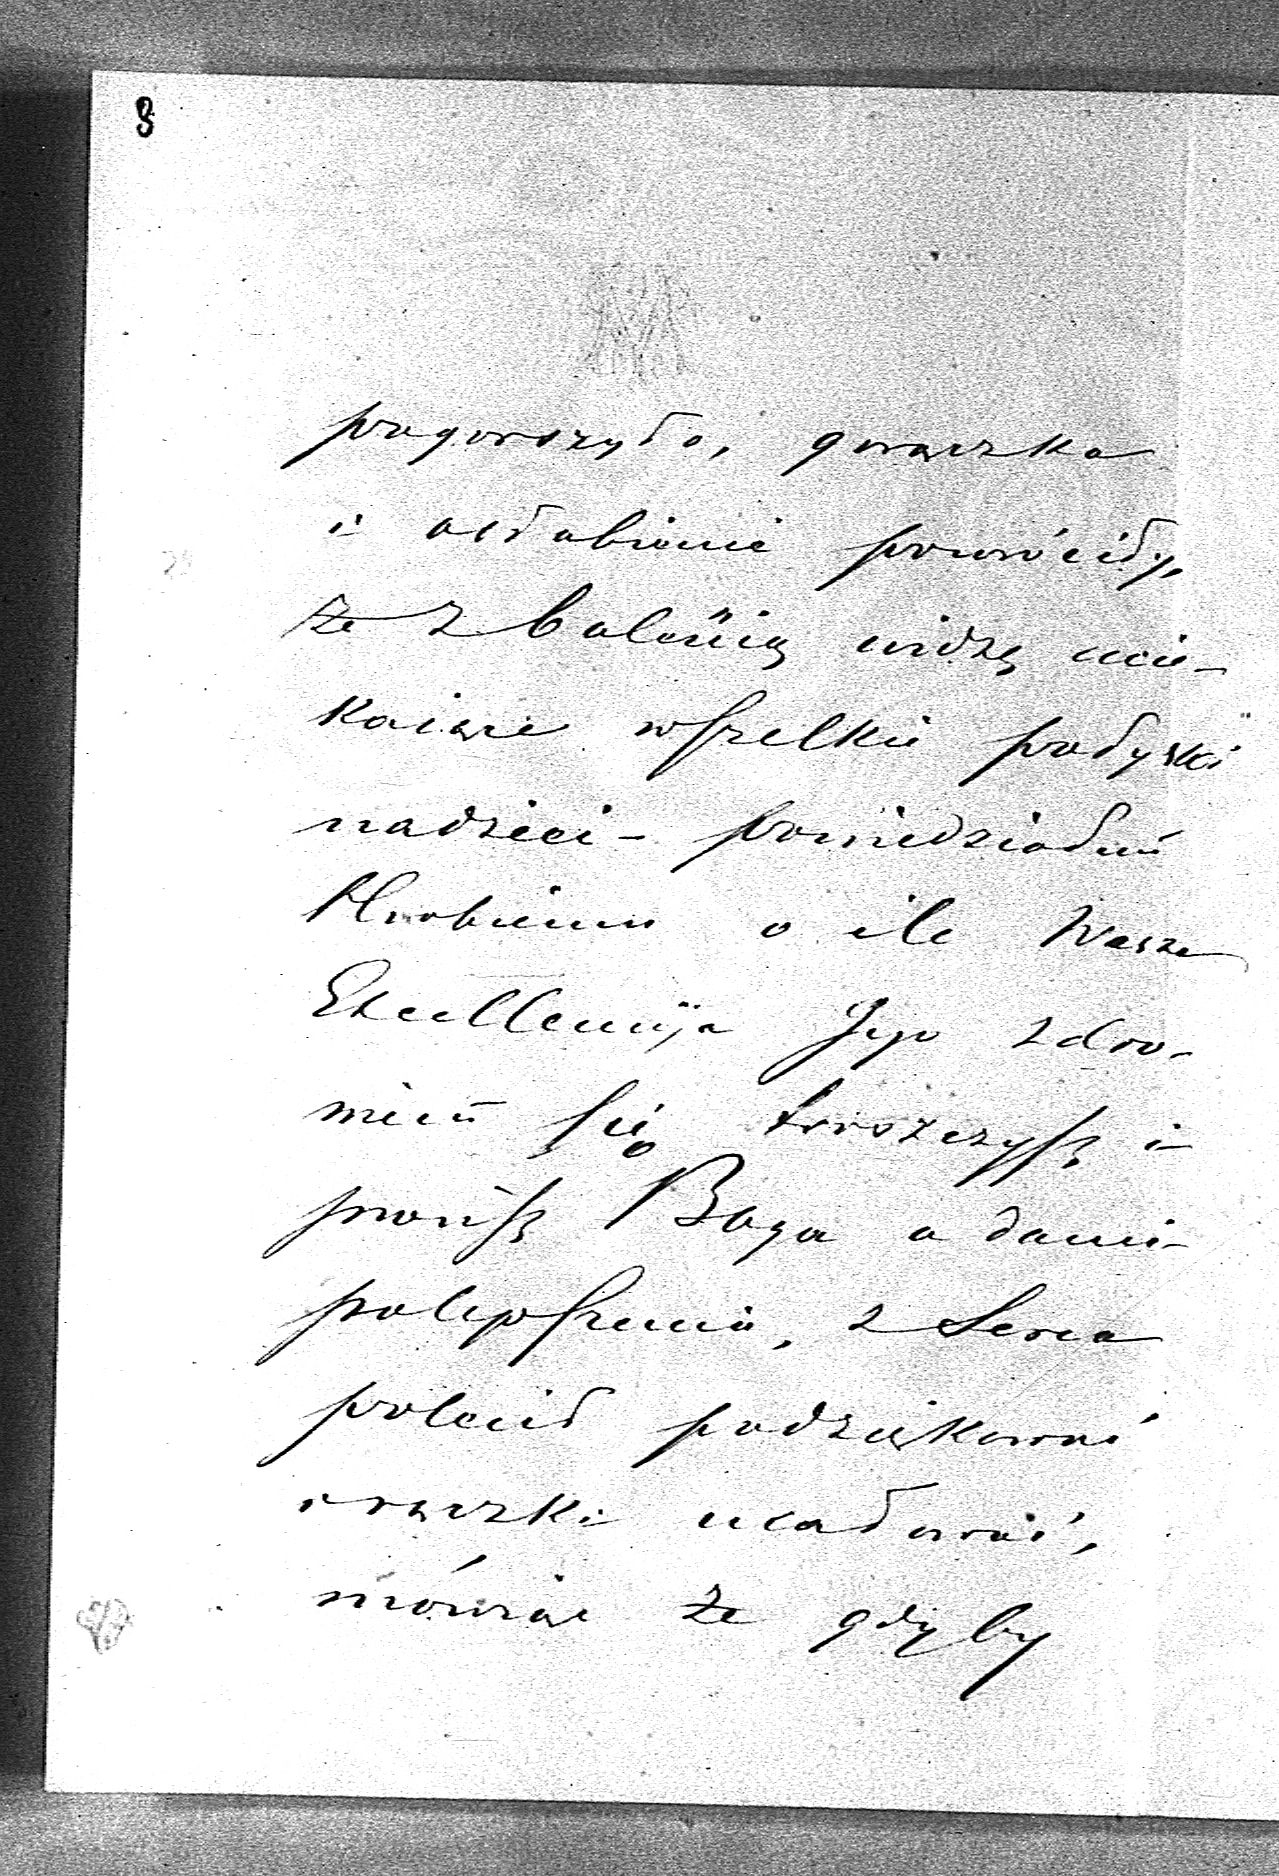 8
pogorszyło, gorączka
i osłabienie powróciły,
że z boleścią widzę ucie-
kające wszelkie połyski
nadziei - powiedziałem
Hrabiemu o ile Wasza
Excellencija Jego zdro-
wiem się troszczysz i
prosisz Boga o danie
polepszenia, z Serca
polecił podziękować
i rączki ucałować,
mówiąc że gdyby